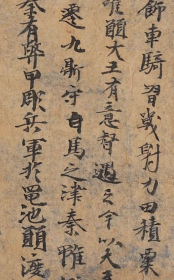 飾車騎習戰射力田積粟
唯願大王有意督過之今以大王
遷九鼎守白馬之津秦雖
秦有弊甲彫兵軍於黽池願渡